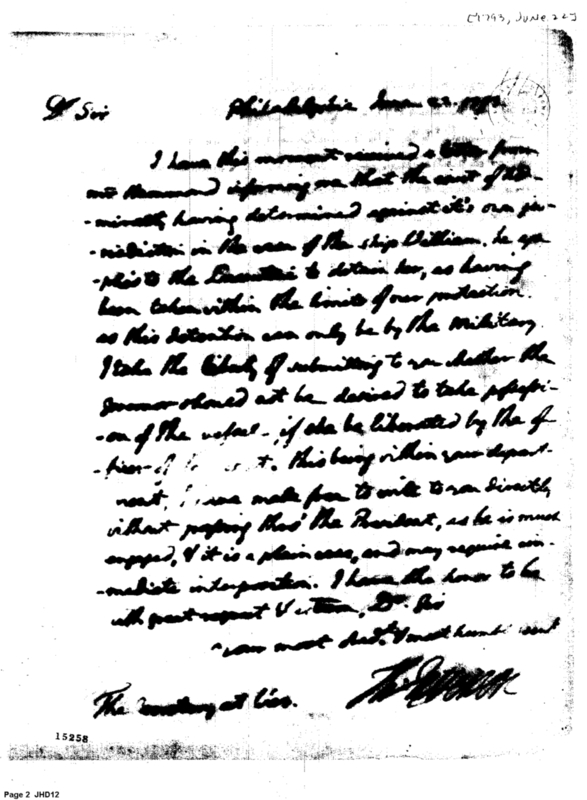 [1793, June 22]
Dr Sir
Philadelphia June 22. 1793
I have this moment received a letter from
mr Hammond informing me that the court of Ad-
-miralty having determined against it's own ju-
-risdiction in the case of the ship William, he ap
-plies to the Executive to detain her, as having
been taken within the limits of our protection.
as this detention can only be by the military
I take the liberty of submitting to you whether the
Governor should not be desired to take possessi-
-on of the vessel, if she be liberated by the of
-ficer of t. this being within your depart-
ment, I have made free to write to you directly
without passing thro' the President, as he is much
engaged, & it is a plain case, and may require im-
-mediate interposition. I have the honor to be
with great respect & esteem, Dr. Sir
your most obedt. & most humb servt
Th: Jefferson
The Secretary at War.
15258
Page 2 JHD12